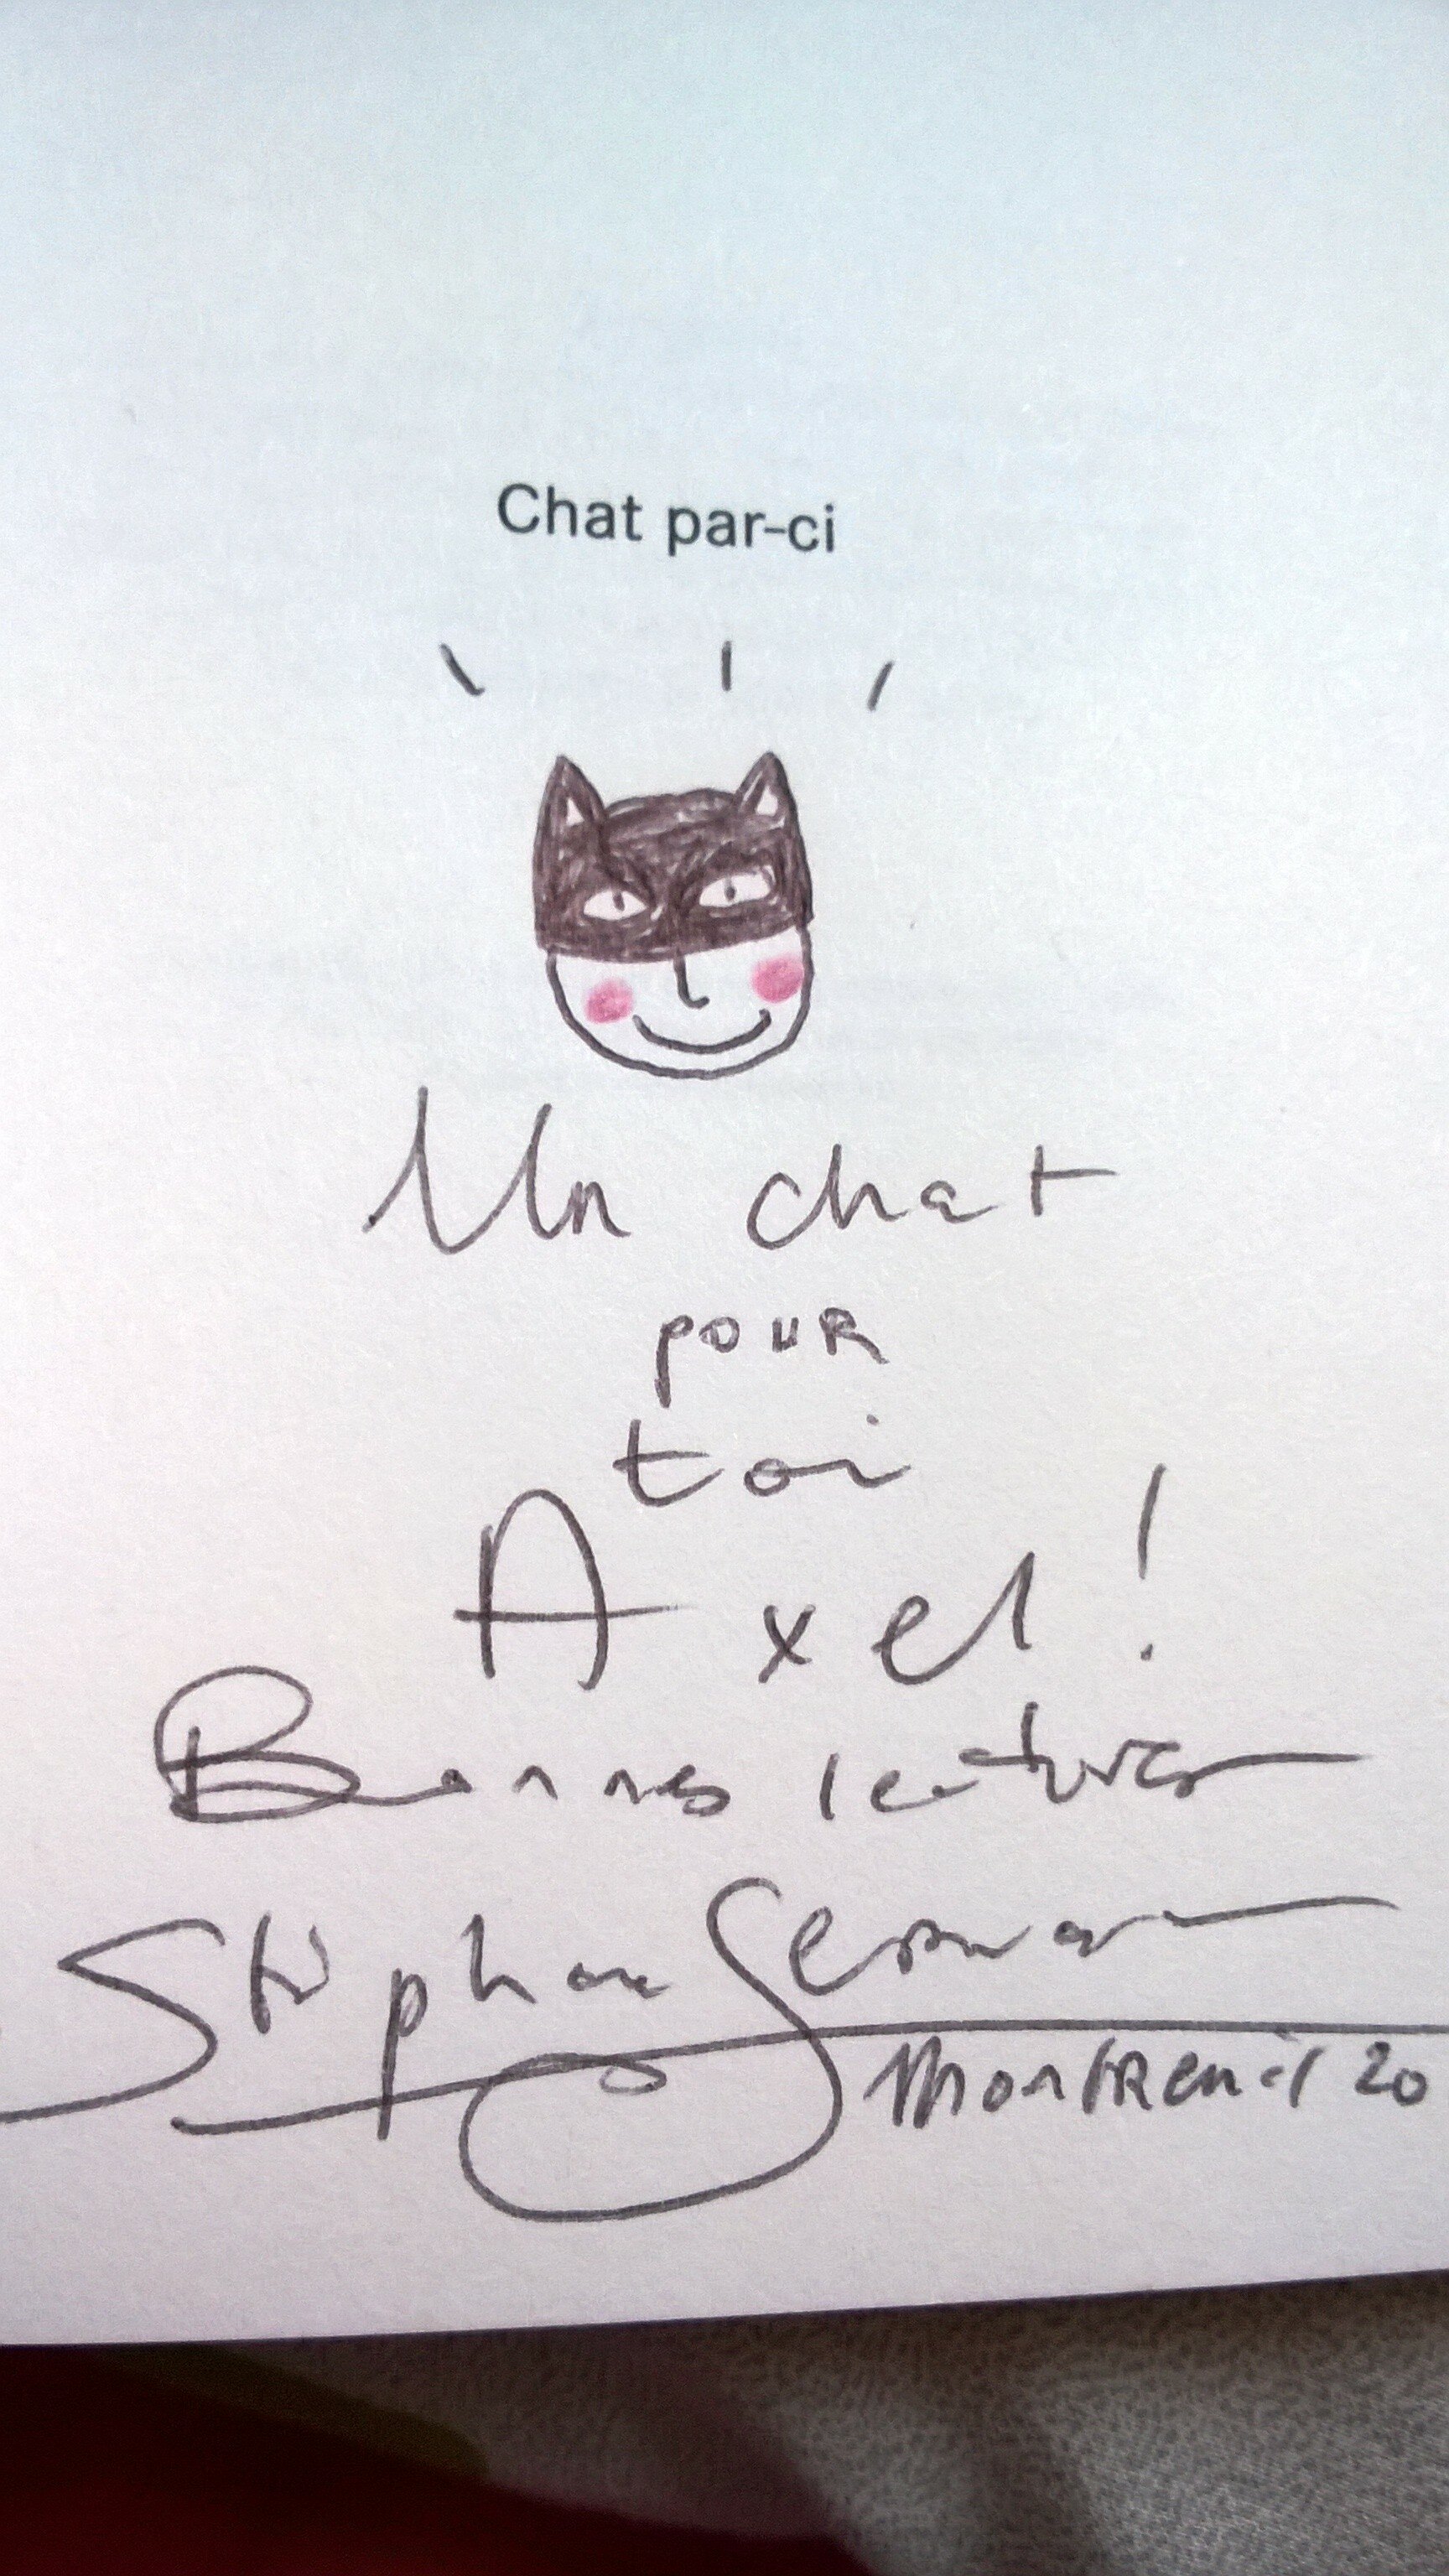 Chat par-ci
Un chat
pour
toi
Axel !
Bonnes lectures
Stéphane Servant
Montreuil 20